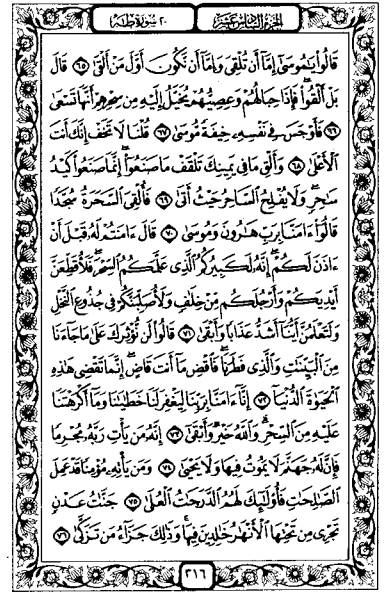 الجزء السادس عشر
٢٠ سورة طه
قَالُوا۟ يَـٰمُوسَىٰٓ إِمَّآ أَن تُلْقِىَ وَإِمَّآ أَن نَّكُونَ أَوَّلَ مَنْ أَلْقَىٰ ٦٥ قَالَ
بَلْ أَلْقُوا۟ ۖ فَإِذَا حِبَالُهُمْ وَعِصِيُّهُمْ يُخَيَّلُ إِلَيْهِ مِن سِحْرِهِمْ أَنَّهَا تَسْعَىٰ
٦٦ فَأَوْجَسَ فِى نَفْسِهِۦ خِيفَةً مُّوسَىٰ ٦٧ قُلْنَا لَا تَخَفْ إِنَّكَ أَنتَ
ٱلْأَعْلَىٰ ٦٨ وَأَلْقِ مَا فِى يَمِينِكَ تَلْقَفْ مَا صَنَعُوٓا۟ ۖ إِنَّمَا صَنَعُوا۟ كَيْدُ
سَـٰحِرٍ ۖ وَلَا يُفْلِحُ ٱلسَّاحِرُ حَيْثُ أَتَىٰ ٦٩ فَأُلْقِىَ ٱلسَّحَرَةُ سُجَّدًا
قَالُوٓا۟ ءَامَنَّا بِرَبِّ هَـٰرُونَ وَمُوسَىٰ ٧٠ قَالَ ءَامَنتُمْ لَهُۥ قَبْلَ أَنْ
ءَاذَنَ لَكُمْ ۖ إِنَّهُۥ لَكَبِيرُكُمُ ٱلَّذِى عَلَّمَكُمُ ٱلسِّحْرَ ۖ فَلَأُقَطِّعَنَّ
أَيْدِيَكُمْ وَأَرْجُلَكُم مِّنْ خِلَـٰفٍ وَلَأُصَلِّبَنَّكُمْ فِى جُذُوعِ ٱلنَّخْلِ
وَلَتَعْلَمُنَّ أَيُّنَآ أَشَدُّ عَذَابًا وَأَبْقَىٰ ٧١ قَالُوا۟ لَن نُّؤْثِرَكَ عَلَىٰ مَا جَآءَنَا
مِنَ ٱلْبَيِّنَـٰتِ وَٱلَّذِى فَطَرَنَا ۖ فَٱقْضِ مَآ أَنتَ قَاضٍ ۖ إِنَّمَا تَقْضِى هَـٰذِهِ
ٱلْحَيَوٰةَ ٱلدُّنْيَآ ٧٢ إِنَّآ ءَامَنَّا بِرَبِّنَا لِيَغْفِرَ لَنَا خَطَـٰيَـٰنَا وَمَآ أَكْرَهْتَنَا
عَلَيْهِ مِنَ ٱلسِّحْرِ ۗ وَٱللَّهُ خَيْرٌ وَأَبْقَىٰٓ ٧٣ إِنَّهُۥ مَن يَأْتِ رَبَّهُۥ مُجْرِمًا
فَإِنَّ لَهُۥ جَهَنَّمَ لَا يَمُوتُ فِيهَا وَلَا يَحْيَىٰ ٧٤ وَمَن يَأْتِهِۦ مُؤْمِنًا قَدْ عَمِلَ
ٱلصَّـٰلِحَـٰتِ فَأُو۟لَـٰٓئِكَ لَهُمُ ٱلدَّرَجَـٰتُ ٱلْعُلَىٰ ٧٥ جَنَّـٰتُ عَدْنٍ
تَجْرِى مِن تَحْتِهَا ٱلْأَنْهَـٰرُ خَـٰلِدِينَ فِيهَا ۚ وَذَٰلِكَ جَزَآءُ مَن تَزَكَّىٰ ٧٦
٣١٦